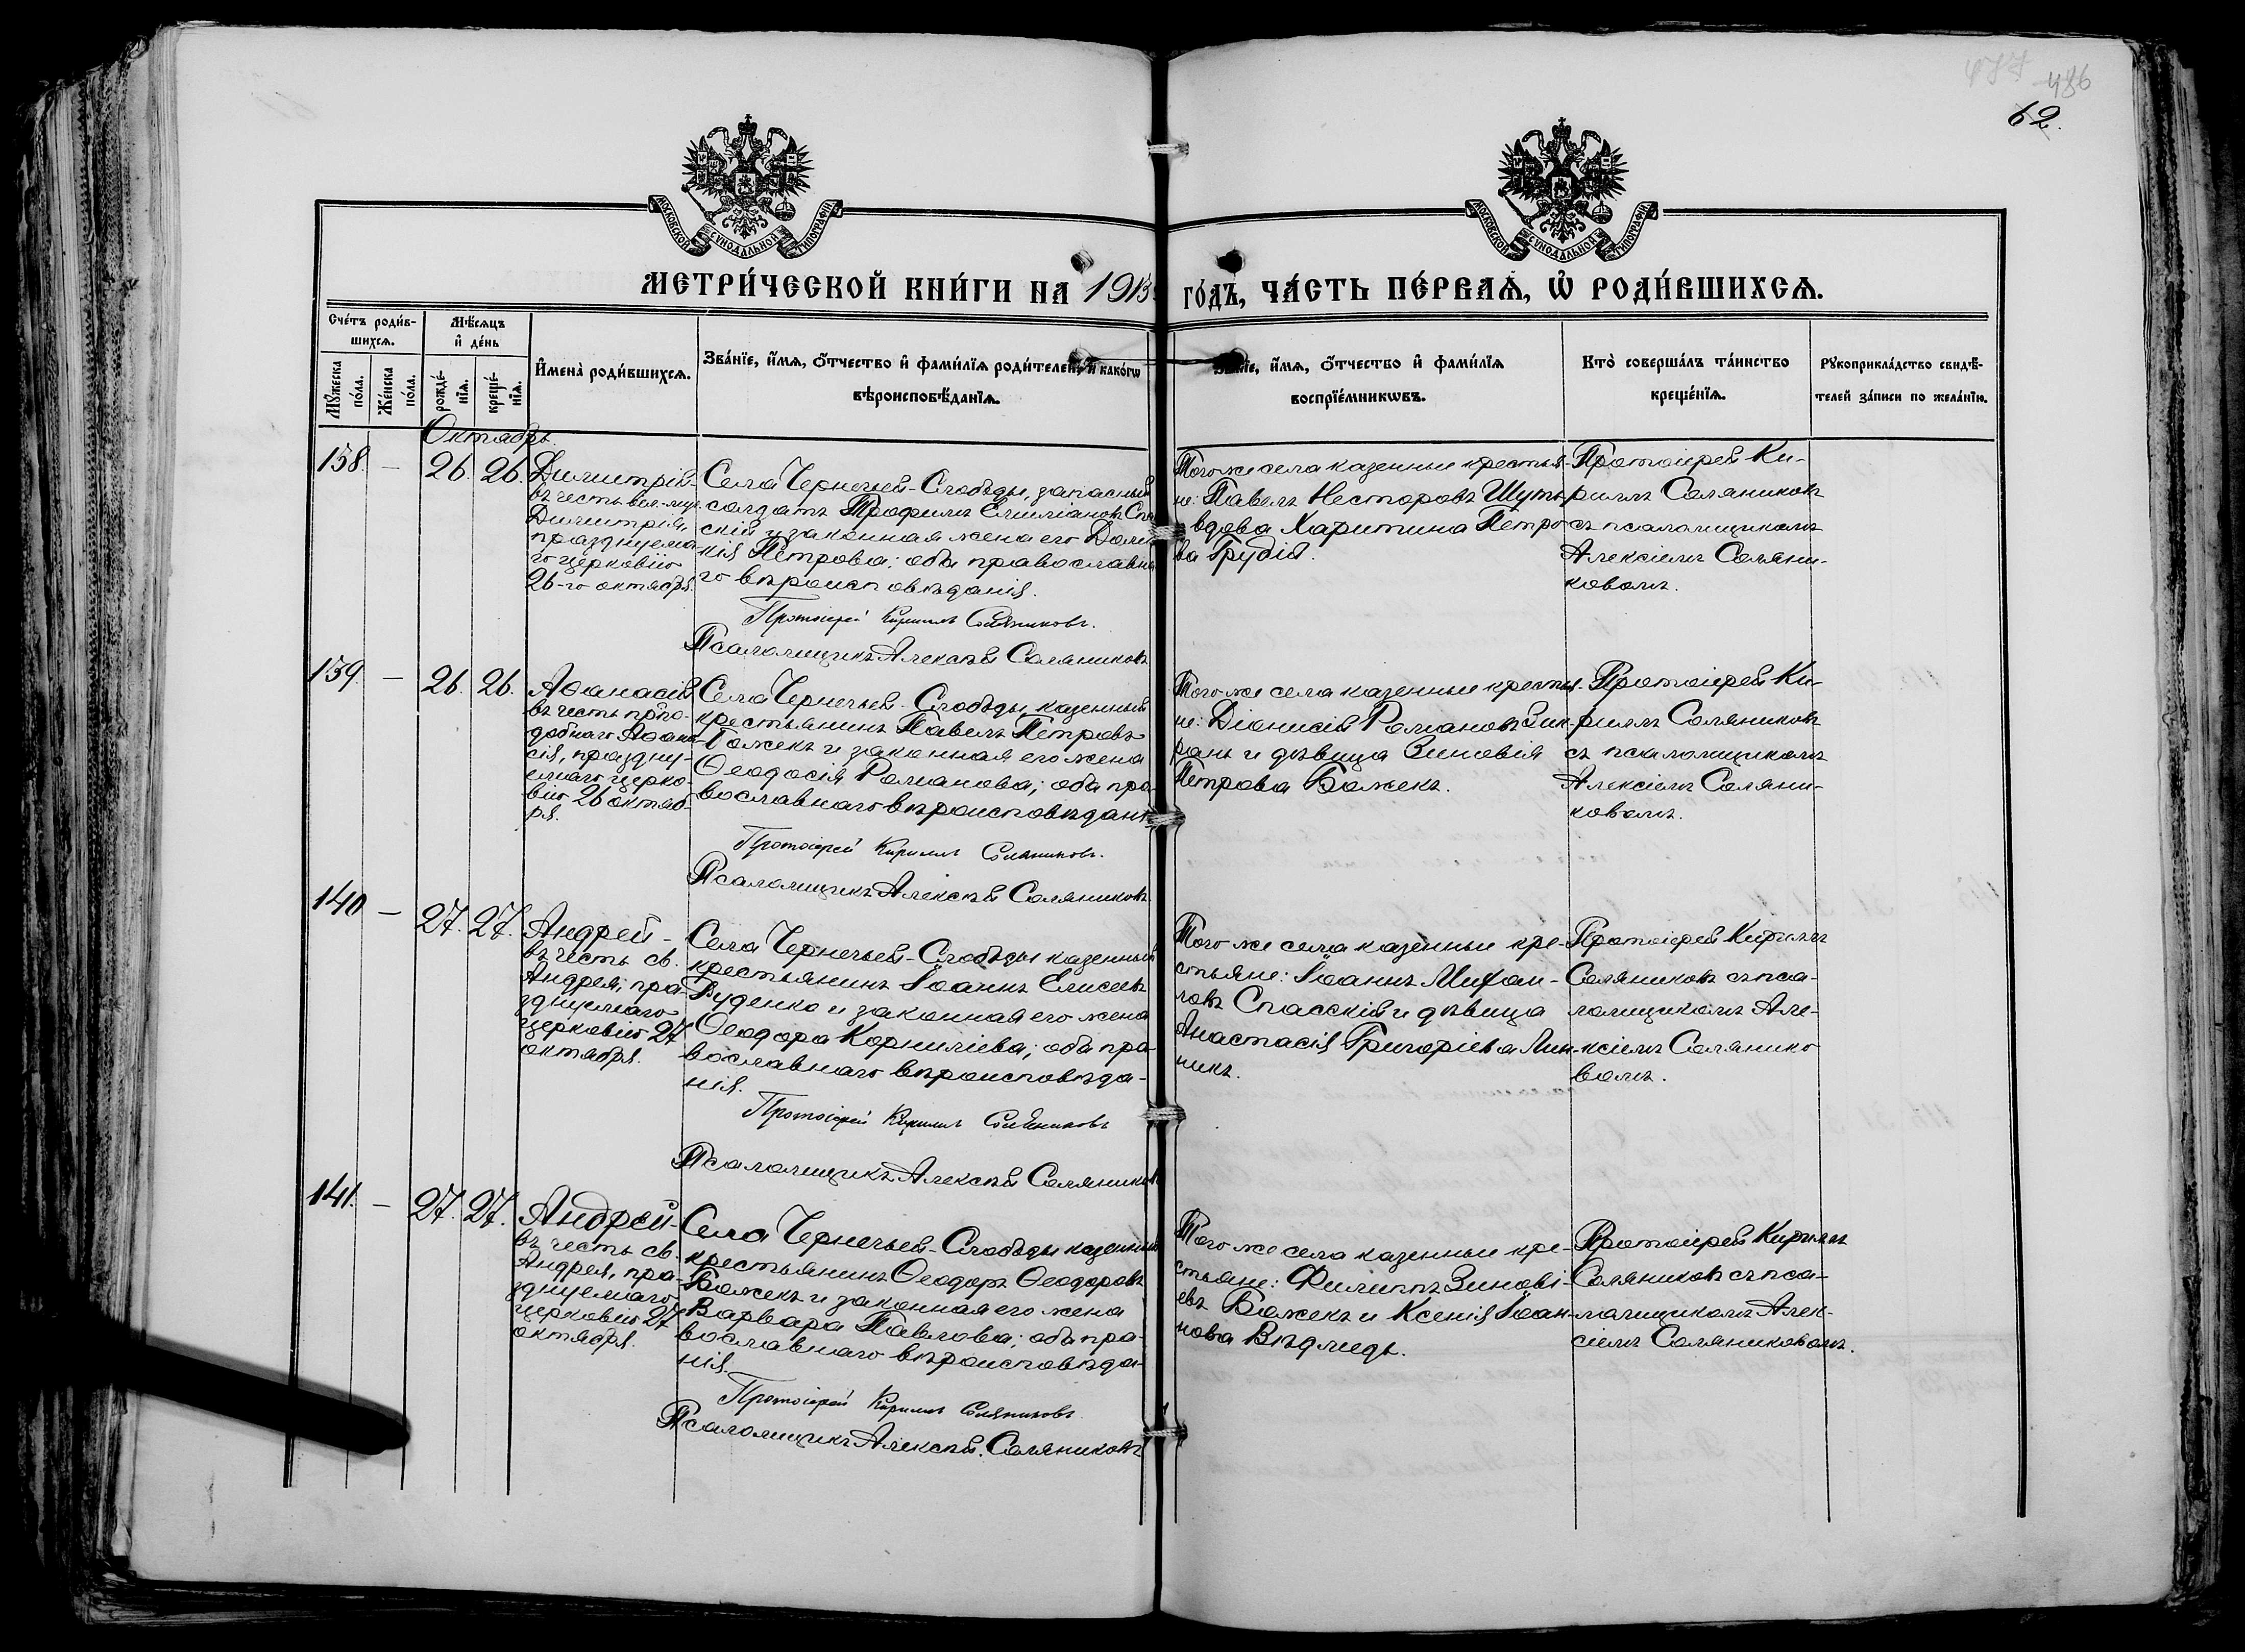 484 486
62.
МОСКОВСКОЙ СѴНОДАЛЬНОЙ ТИПОГРАФІИ
МОСКОВСКОЙ СѴНОДАЛЬНОЙ ТИПОГРАФІИ
МЕТРИ́ЧЕСКОЙ КНИ́ГИ НА 1913 ГО́ДЪ, ЧА́СТЬ ПЕ́РВАѦ, Ѡ҆ РОДИ́ВШИХСѦ.
Сче́тъ роди́в-
шихсѧ.
Мꙋ́жеска
по́ла.
Же́нска
по́ла.
Мѣ́сѧцъ
и҆ де́нь
рожде́-
нїѧ.
креще́-
нїѧ.
И҆мена̀ роди́вшихсѧ.
Зва́нїе, и҆́мѧ, ѻ҆́тчество и҆ фами́лїѧ роди́телей, и҆ како́гѡ
вѣроисповѣ́данїѧ.
и҆́мѧ, ѻ҆́тчество и҆ фами́лїѧ
воспрїе́мникѡвъ.
Кто̀ соверша́лъ та́инство
креще́нїѧ.
Рꙋкоприкла́дство свидѣ́-
телей за́писи по жела́нїю.
Октябрь.
138. — 26. 26.
Димитрій-
въ честь вел.-муч.
Димитрія,
празднуема
го церковію
26-го октября.
Села Чернечьей-Слободы, запасный
солдатъ Трофимъ Емиліановъ Спас
скій и законная жена его Доми
кія Петрова; оба православна
го вѣроисповѣданія.
Протоіерей Кириллъ Соляниковъ.
Псаломщикъ Алексѣй Соляниковъ
Того же села казенные крестья-
не: Павелъ Несторовъ Шуть
и вдова Харитина Петро
ва Грудій.
Протоіерей Ки-
риллъ Соляниковъ
съ псаломщикомъ
Алексіемъ Соляни-
ковомъ.
139. — 26. 26.
Аѳанасій
въ честь препо-
добнаго Аѳана-
сія, праздну-
емаго церко-
вію 26 октяб-
ря.
Села Чернечьей-Слободы, казенный
крестьянинъ Павелъ Петровъ
Божекъ и законная его жена
Ѳеодосія Романова; оба пра-
вославнаго вѣроисповѣданія
Протоіерей Кириллъ Соляниковъ.
Псаломщикъ Алексѣй Соляниковъ
Того же села казенные крестья-
не: Діонисій Романовъ Зик-
рань и дѣвица Зиновія
Петрова Божекъ.
Протоіерей Ки-
риллъ Соляниковъ
съ псаломщикомъ
Алексіемъ Соляни-
ковомъ.
140 — 27. 27.
Андрей-
въ честь св.
Андрея, пра-
зднуемаго
церковію 27
октября.
Села Чернечьей-Слободы казенный
крестьянинъ Іоаннъ Елисеевъ
Руденко и законная его жена
Ѳеодора Корниліева; оба пра-
вославнаго вѣроисповѣда-
нія.
Протоіерей Кириллъ Соляниковъ
Псаломщикъ Алексѣй Соляниковъ
Того же села казенные кре-
стьяне: Іоаннъ Михаи-
ловъ Спасскій и дѣвица
Анастасія Григоріева Лин-
никъ.
Протоіерей Кириллъ
Соляниковъ съ пса-
ломщикомъ Але-
ксіемъ Солянико
вомъ.
141. — 27. 27.
Андрей-
въ честь св.
Андрея, пра-
зднуемаго
церковію 27
октября.
Села Чернечьей-Слободы казенный
крестьянинъ Ѳеодоръ Ѳеодоровъ
Божекъ и законная его жена
Варвара Павлова; оба пра-
вославнаго вѣроисповѣда-
нія.
Протоіерей Кириллъ Соляниковъ.
Псаломщикъ Алексѣй Соляниковъ
Того же села казенные кре-
стьяне: Филиппъ Зинові-
евъ Божекъ и Ксенія Іоан-
нова Вѣдмедь.
Протоіерей Кириллъ
Соляниковъ съ пса-
ломщикомъ Алек-
сіемъ Соляниковомъ.